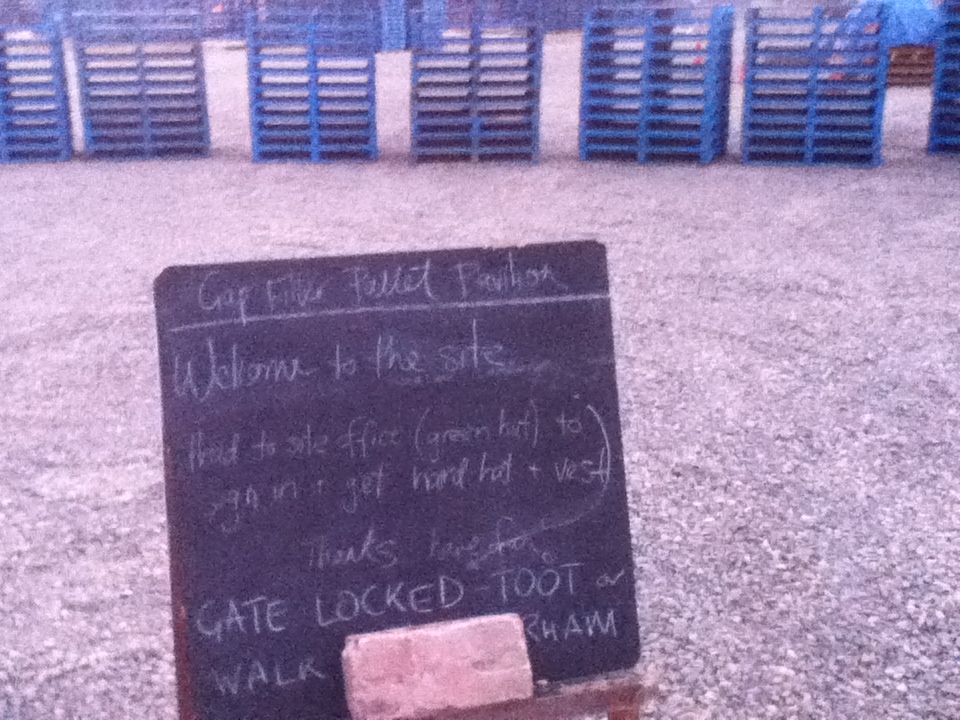 Gap Filler Pallet Pavilion
Welcome to the site
Head to site office (green hut) to
sign in + get hard hat + vest
Thanks, have fun.
GATE LOCKED - TOOT or
WALK RHAM